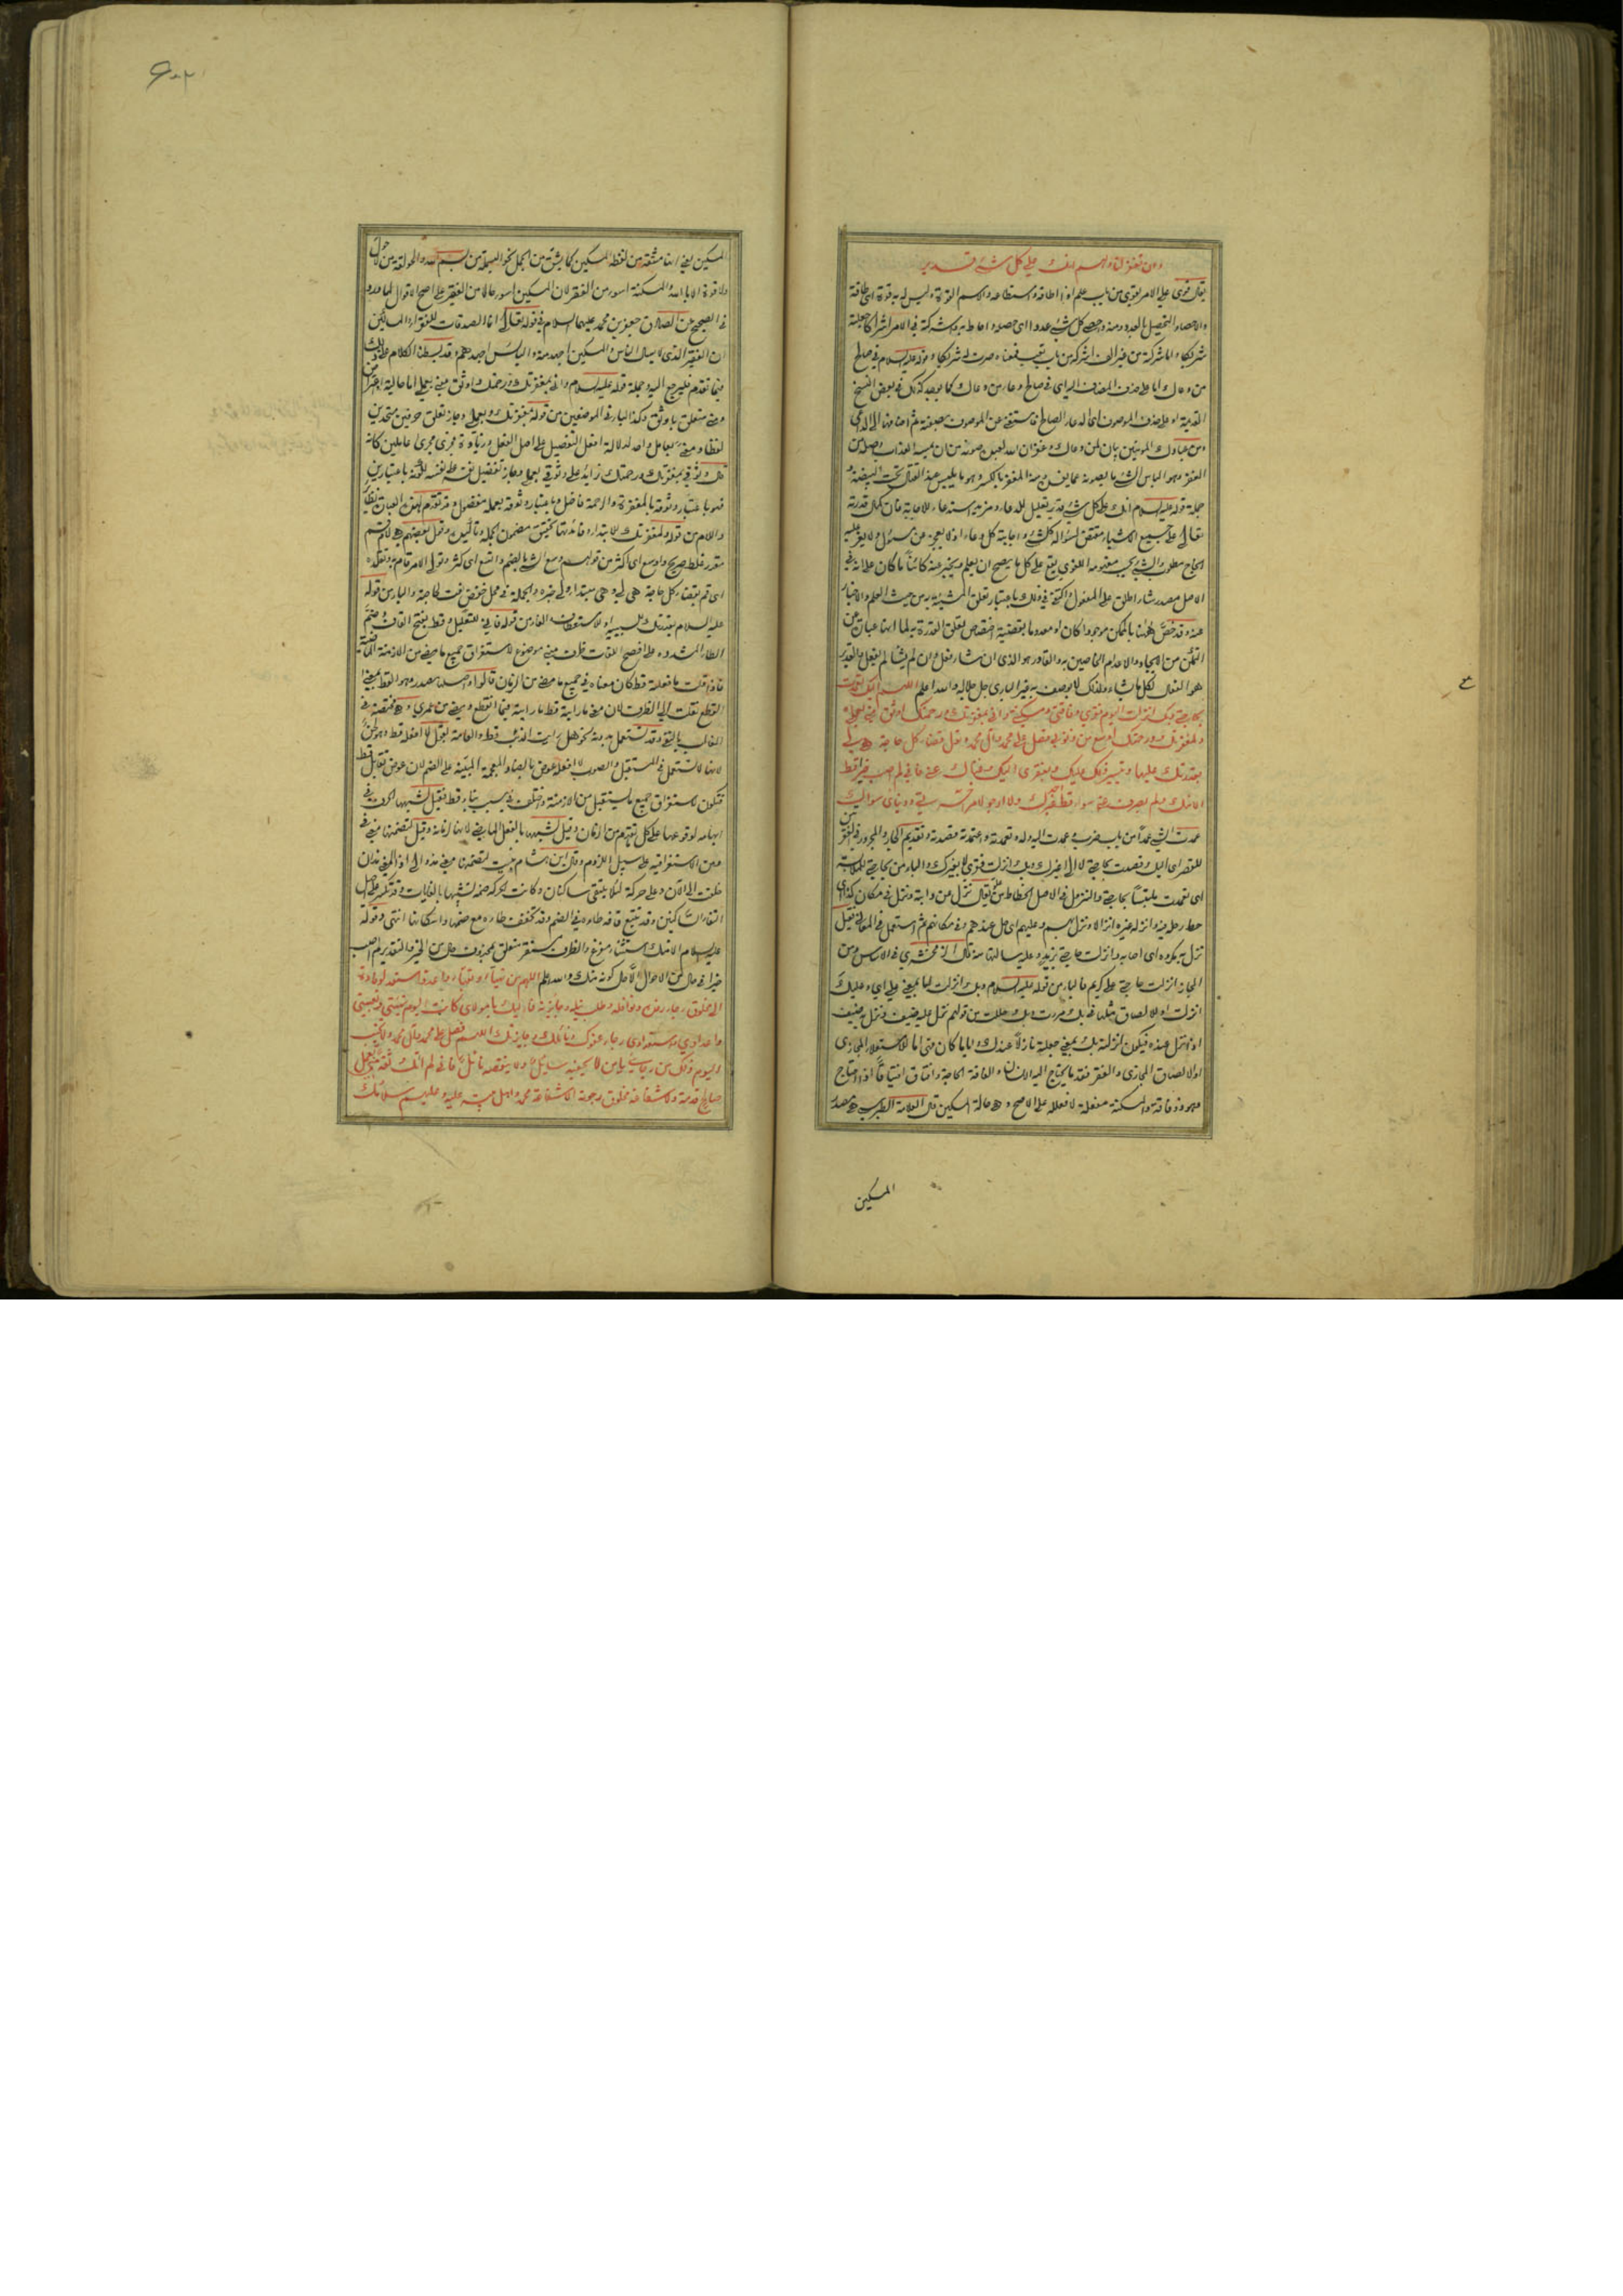 وان تغفر لنا ولهم انك على كل شيء قدير
يقال قوي على الامر يقوى من باب علم اذا اطاقه واستطاعه والاسم القوة وليس له به قوة اي طاقة
والاحصاء التحصيل بالعدد ومنه واحصى كل شيء عددا اي حصله واحاط به واشركه في الامر اشراكا جعله
شريكا واما شركه من غير الف اشركه من باب تعب فمعناه صرت له شريكا وقوله عليه السلام في صالح
من دعاك اما على حذف المضاف اليه اي في صالح دعاء من دعاك كما يوجد كذلك في بعض النسخ
القديمة او على حذف الموصوف اي في الدعاء الصالح فاستغنى عن الموصوف بصفته ثم اضافها الى الداعي
ومن عبادك المؤمنين بيان لمن دعاك وغفران الله للعبد صونه من ان يمسه العذاب واصله من
الغفر وهو الباس الشيء ما يصونه عما يضره ومنه المغفر بالكسر وهو ما يلبس عند القتال تحت البيضة و
جملة قوله عليه السلام انك على كل شيء قدير تعليل للدعاء ومزيد استدعاء للاجابة فان كمال قدرته
تعالى على جميع الاشياء مقتض لسؤاله كل شيء واجابة كل دعاء اذ لا يعجز عن مسؤل ولا يعز عليه
انجاح مطلوب والشيء بحسب مفهومه اللغوي يقع على كل ما يصح ان يعلم ويخبر عنه كائنا ما كان على انه في
الاصل مصدر شاء اطلق على المفعول واكتفي في ذلك باعتبار تعلق المشيئة به من حيث العلم والاخبار
عنه وقد خص ههنا بالممكن موجودا كان او معدوما بقضية اختصاص تعلق القدرة به لما انها عبارة عن
التمكن من الايجاد والاعدام الخاصين به والقادر هو الذي ان شاء فعل وان لم يشأ لم يفعل والقدير
هو الفعال لكل ما شاء ولذلك لا يوصف به غير الباري جل جلاله والله اعلم اللهم اليك تعمدت
بحاجتي وبك انزلت اليوم فقري وفاقتي ومسكنتي واني بمغفرتك ورحمتك اوثق مني بعملي
ولمغفرتك ورحمتك اوسع من ذنوبي فصل على محمد وآل محمد وتول قضاء كل حاجة هي لي
بقدرتك عليها وتيسير ذلك عليك وبفقري اليك وغناك عني فاني لم اصب خيرا قط
الا منك ولم يصرف عني سوءا قط احد غيرك ولا ارجو لامر آخرتي ودنياي سواك
عمدت الشيء عمدا من باب ضرب وعمدت اليه وله وتعمدته واعتمدته قصدته وتقديم الجار والمجرور في الفقرتين
للقصر اي اليك وقصدت بحاجتي لا الى غيرك وبك انزلت فقري لا بغيرك والباء من بحاجتي للملابسة
اي تعمدت ملتبسا بحاجتي والنزول في الاصل انحطاط من علو يقال نزل عن دابته ونزل في مكان كذا اي
حط رحله فيه وانزله غيره انزالا ونزل بهم وعليهم اي حل عندهم وفي مكانهم ثم استعمل في المعاني فقيل
نزل به مكروه اي اصابه وانزلت حاجتي بزيد وعليه سالتها منه قال الزمخشري في الاساس ومن
المجاز انزلت حاجتي على كريم فالباء من قوله عليه السلام وبك انزلت اما بمعنى على اي وعليك
انزلت او للالصاق مثلها في بك مررت وبك حللت من قولهم نزل عليه ضيف ونزل به ضيف
اذا نزل عنده فيكون انزلته بك بمعنى جعلته نازلا عندك وايا ما كان فهي اما للاستعلاء المجازي
او للالصاق المجازي والفقر فقد ما يحتاج اليه الانسان والفاقة الحاجة وافتاق افتياقا اذا احتاج
وهو ذو فاقة والمسكنة مفعلة لا فعللة على الاصح وهي حالة المسكين قال العلامة الطبرسي هي مصدر
المسكين
المسكين يعني انها مشتقة من لفظ المسكين كما يشتق من الجمل نحو البسملة من بسم الله والحولقة من لا حول
ولا قوة الا بالله والمسكنة اسوء من الفقر لان المسكين اسوء حالا من الفقير على اصح الاقوال لما ورد
في الصحيح عن الصادق جعفر بن محمد عليهما السلام في قوله تعالى انما الصدقات للفقراء والمساكين
ان الفقير الذي لا يسال الناس والمسكين اجهد منه والبائس اجهدهم وقد بسطنا الكلام على ذلك
فيما تقدم فليرجع اليه وجملة قوله عليه السلام واني بمغفرتك ورحمتك اوثق مني بعملي اما حالية او اعتراض
ومني متعلق باوثق وكذا الباء في الموضعين من قوله بمغفرتك وبعملي وجاز تعلق حرفين متحدين
لفظا ومعنى بعامل واحد لدلالة افعل التفضيل على اصل الفعل وزيادة فجرى مجرى عاملين كانه
قال وثوقي بمغفرتك ورحمتك زايد على وثوقي بعملي وجاز تفضيل نفسه على نفسه للثقة باعتبارين
فهو باعتبار وثوقه بالمغفرة والرحمة فاضل وباعتبار وثوقه بعمله مفضول وقد تقدم لهذه العبارة نظاير
واللام من قوله ولمغفرتك للابتداء وفائدتها تحقيق مضمون الجملة وتاكيده وقول بعضهم هي لام قسم
مقدر غلط صريح واوسع اي اكثر من قولهم وسع الشيء بالضم واتسع اي كثر وتولى الامر قام به وتقلده
اي قم بقضاء كل حاجة هي لي وهي مبتدا ولي خبره والجملة في محل خفض نعت لحاجة والباء من قوله
عليه السلام بقدرتك للسببية او للاستعطاف والفاء من قوله فاني للتعليل وقط بفتح القاف وضم
الطاء المشددة على افصح اللغات ظرف مبني موضوع لاستغراق جميع ما مضى من الازمنة الماضية
فاذا قلت ما فعلته قط كان معناه في جميع ما مضى من الزمان قالوا واصله مصدر وهو القط بمعنى
القطع نقلت الى الظرف لان معنى ما رايته قط ما رايته فيما انقطع ومضى من عمري وهي مختصة في
الغالب بالنفي وقد تستعمل بدونه نحو هل رايت الذئب قط والعامة تقول لا افعله قط وهو لحن
لانها لا تستعمل في المستقبل والصواب لا افعله عوض بالضاد المعجمة المبنية على الضم لان عوض تقابل قط
فتكون لاستغراق جميع ما يستقبل من الازمنة واختلف في سبب بناء قط فقيل لشبهها الحرف في
ابهامه لوقوعها على كل متوهم من الزمان وقيل لشبهها بالفعل الماضي لانها لزمانه وقيل لتضمنها معنى في
ومن الاستغراقية على سبيل اللزوم وقال ابن هشام بنيت لتضمنها معنى مذ والى اذ المعنى مذ ان
خلقت الى الآن وعلى حركة لئلا يلتقي ساكنان وكانت الحركة ضمة لشبهها بالغايات وقد تكسر على اصل
التقاء الساكنين وقد تتبع قافه طاءه في الضم وقد تخفف طاءه مع ضمها واسكانها انتهى وقوله
عليه السلام الا منك استثناء مفرغ والظرف مستقر متعلق بمحذوف حال من الخير والتقدير لم اصب
خيرا في حال من الاحوال الا حال كونه منك والله اعلم اللهم من تهيأ او تعبأ واعد واستعد لوفادة
الى مخلوق رجاء رفده ونوافله وطلب نيله وجايزته فاليك يا مولاي كانت اليوم تهيئتي وتعبيتي
واعدادي واستعدادي رجاء عفوك ونائلك وجايزتك اللهم فصل على محمد وآل محمد ولا تخيب
اليوم ذلك من رجائي يا من لا يحفيه سائل ولا ينقصه نائل فاني لم آتك ثقة مني بعمل
صالح قدمته ولا شفاعة مخلوق رجوته الا شفاعة محمد واهل بيته عليه وعليهم سلامك